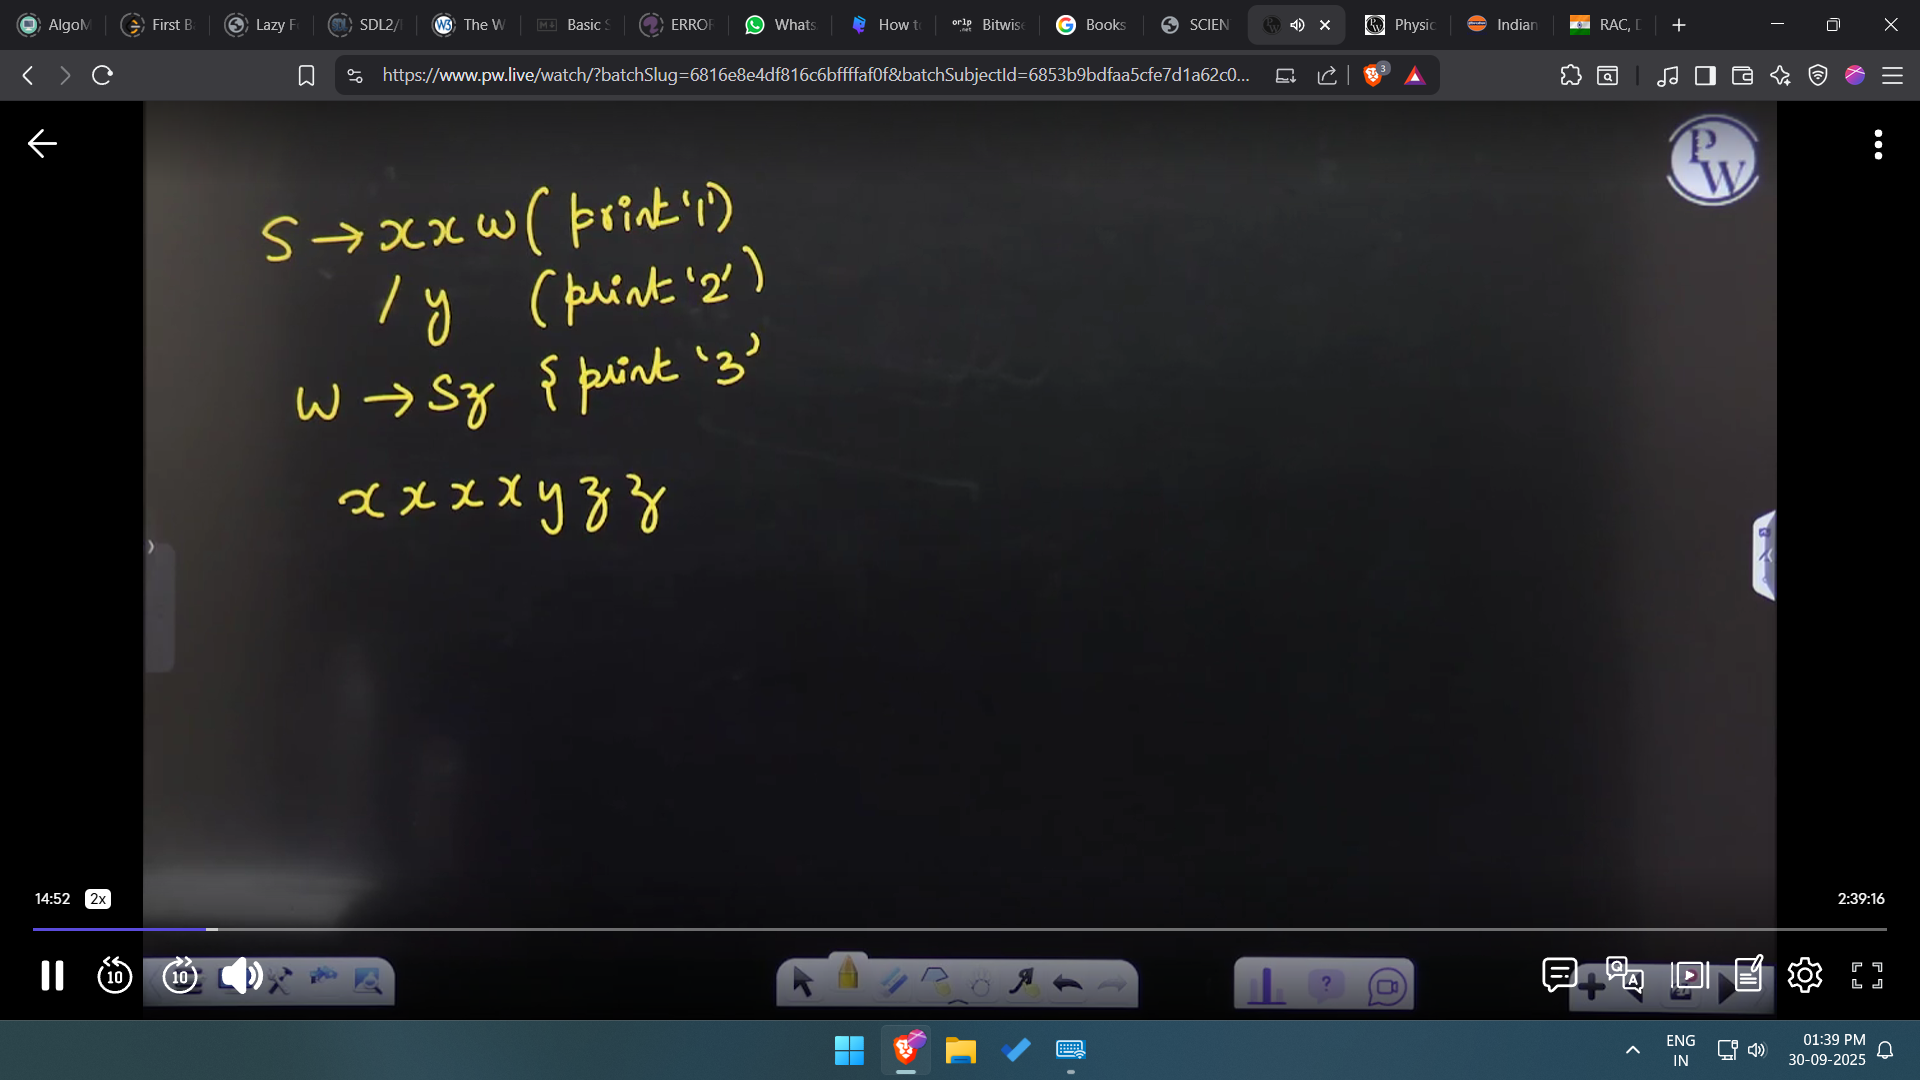 AlgoM
First B
Lazy F
SDL2/
The W
Basic S
ERROR
Whats
How t
orlp .net Bitwise
Books
SCIEN
Physic
Indian
RAC, D
https://www.pw.live/watch/?batchSlug=6816e8e4df816c6bffffaf0f&batchSubjectId=6853b9bdfaa5cfe7d1a62c0...
3
PW
S → x x w ( print '1' )
/ y ( print '2' )
w → S z { print '3'
x x x x y z z
14:52 2x
2:39:16
10 10
ENG 01:39 PM
IN 30-09-2025